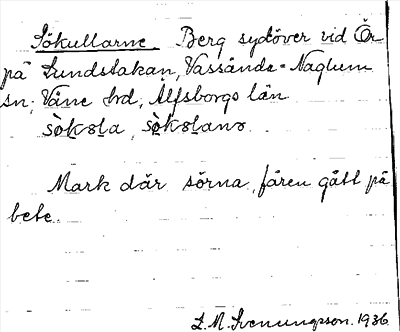 Sökullarne. Berg sydöver vid Ör
på Lundstakan, Vassända-Naglum
sn; Väne hrd, Älfsborgs län
Mark där sörna, fåren gått på
bete.
L.M. Svenungsson. 1936